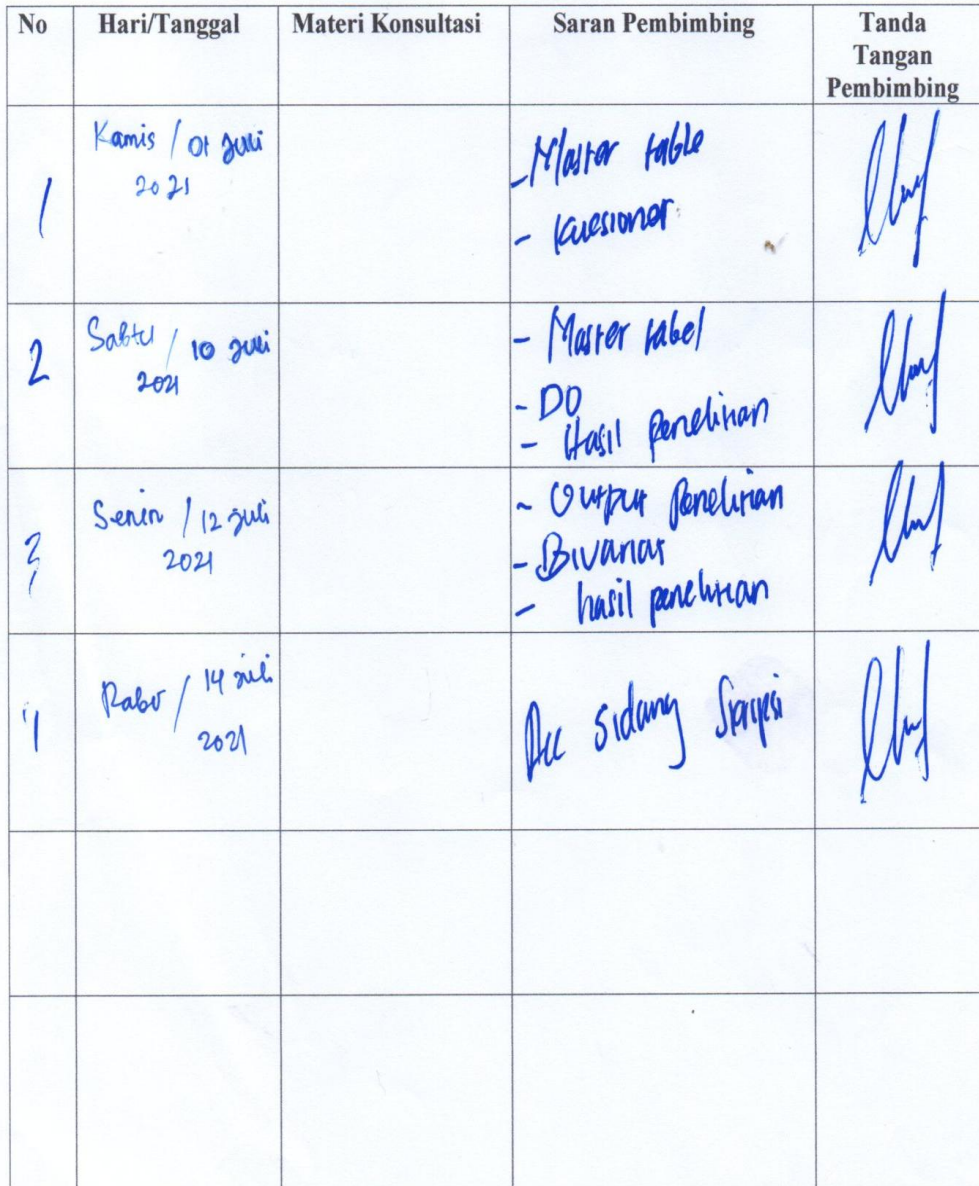 No Hari/Tanggal Materi Konsultasi Saran Pembimbing Tanda
Tangan
Pembimbing
1 Kamis / 01 Juli
2021
- Master table
- Kuesioner
2 Sabtu / 10 Juli
2021
- Master tabel
- DO
- Hasil penelitian
3 Senin / 12 Juli
2021
- Output Penelitian
- Bivariat
- hasil penelitian
4 Rabu / 14 Juli
2021
Acc Sidang Skripsi